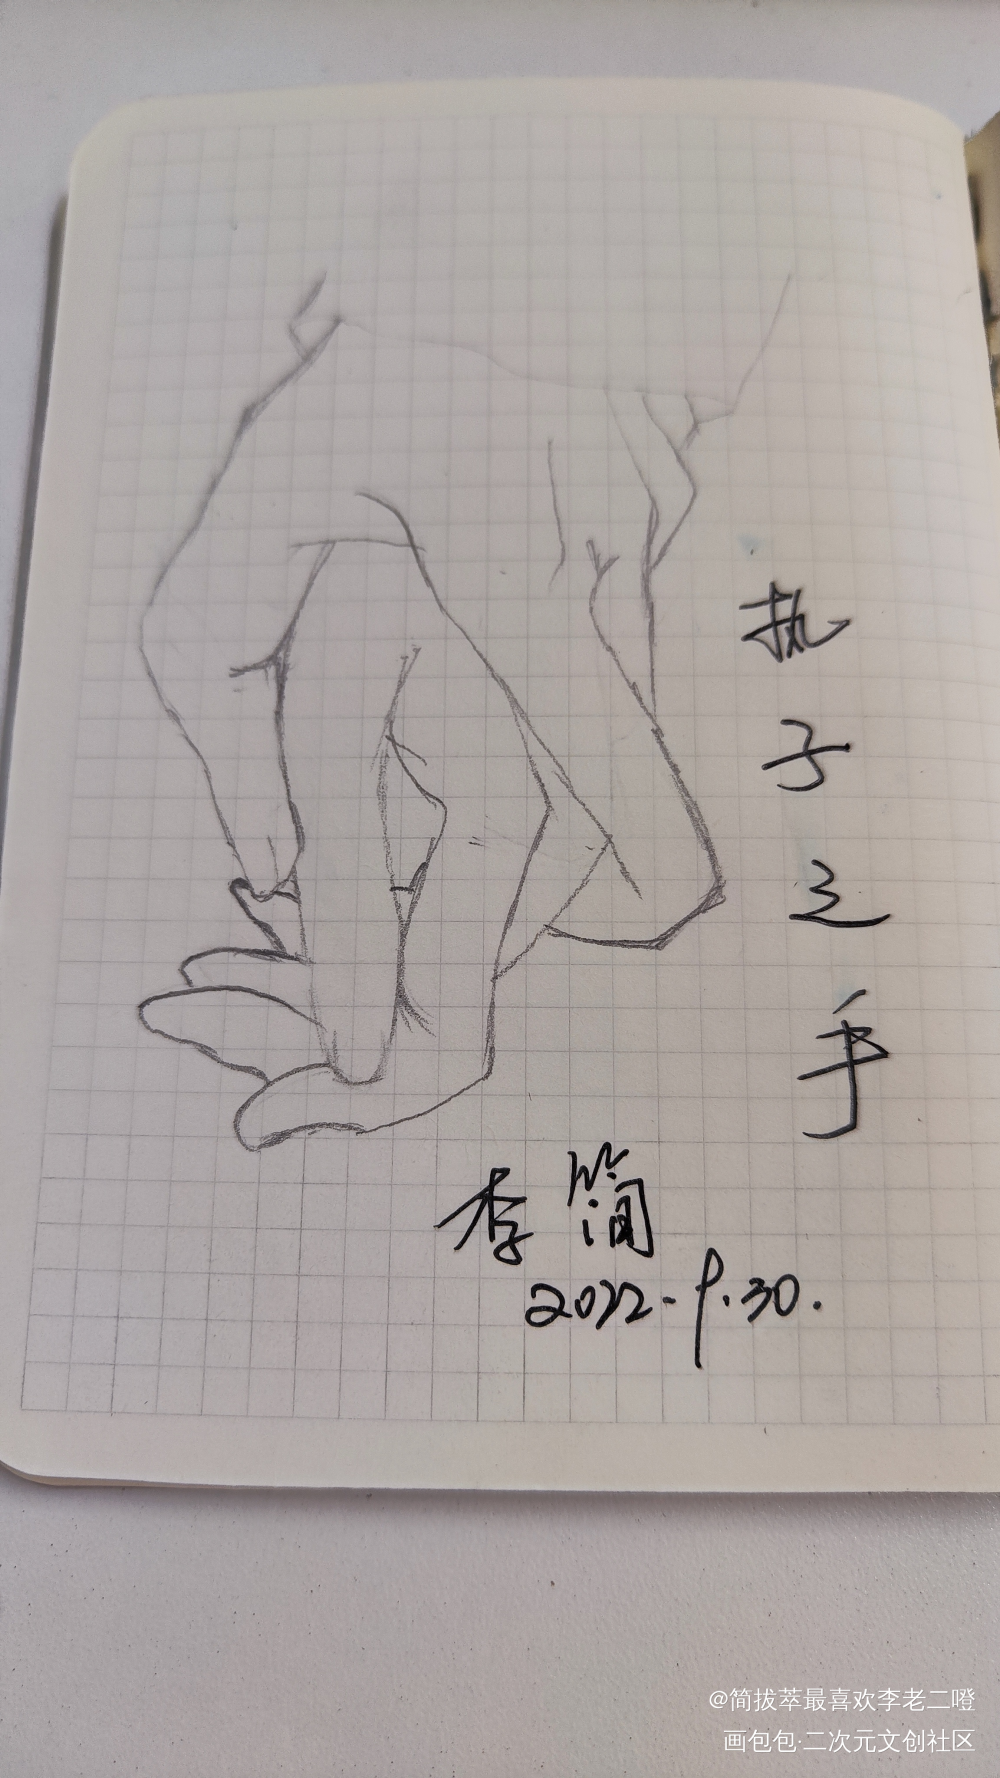 执子之手
李简
2022.9.30.
@简拔萃最喜欢李老二噔
画包包·二次元文创社区